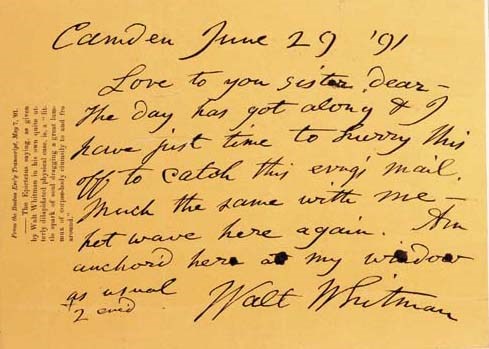 From the Boston Eve'g Transcript, May 7, '91.
——The Epictetus saying, as given
by Walt Whitman in his own quite ut-
terly dilapidated physical case, is, a "lit-
tle spark of soul dragging a great lum-
mux of corpse-body clumsily to and fro
around."
Camden June 29 '91
Love to you sister dear –
The day has got along & I
have just time to hurry this
off to catch this evng mail.
Much the same with me – Am
hot wave here again.
anchor'd here at my window
as usual
Walt Whitman
2